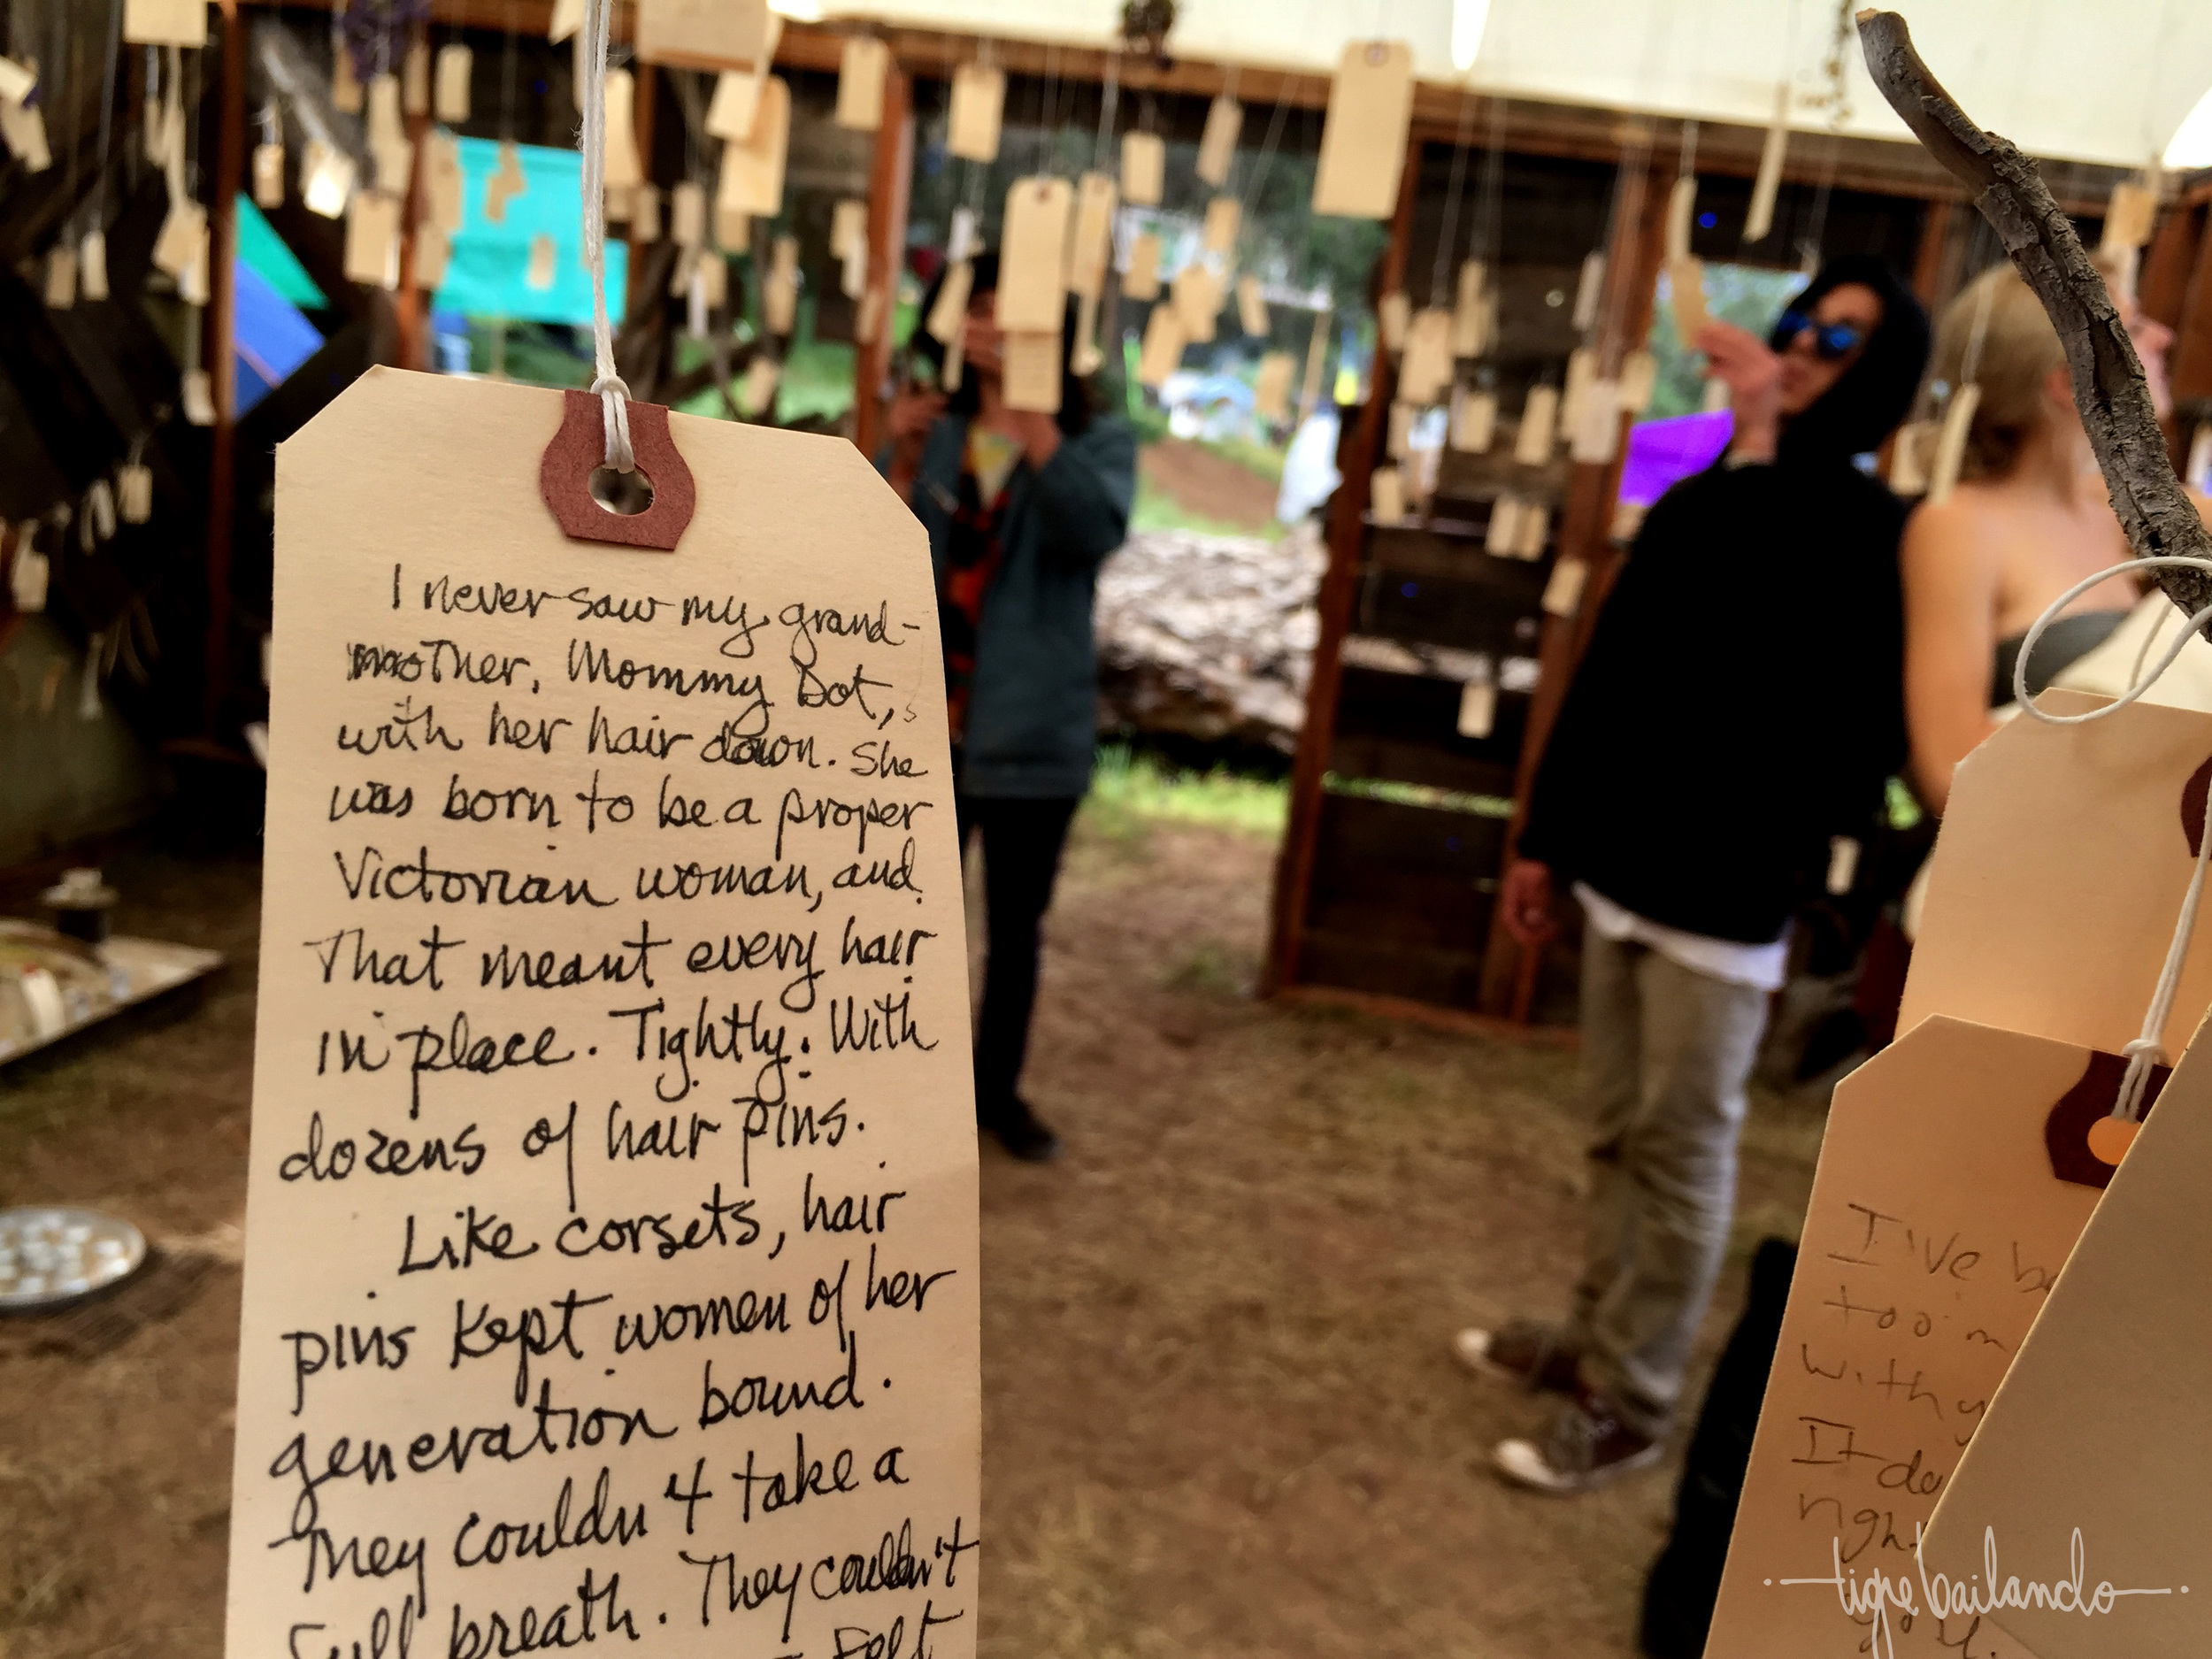 I never saw my grand-
mother, Mommy Dot,
with her hair down. She
was born to be a proper
Victorian woman, and
That meant every hair
in place. Tightly. With
dozens of hair pins.
Like corsets, hair
pins kept women of her
generation bound.
They couldn't take a
full breath. They couldn't
felt
I've
too
with
It
tigre bailando